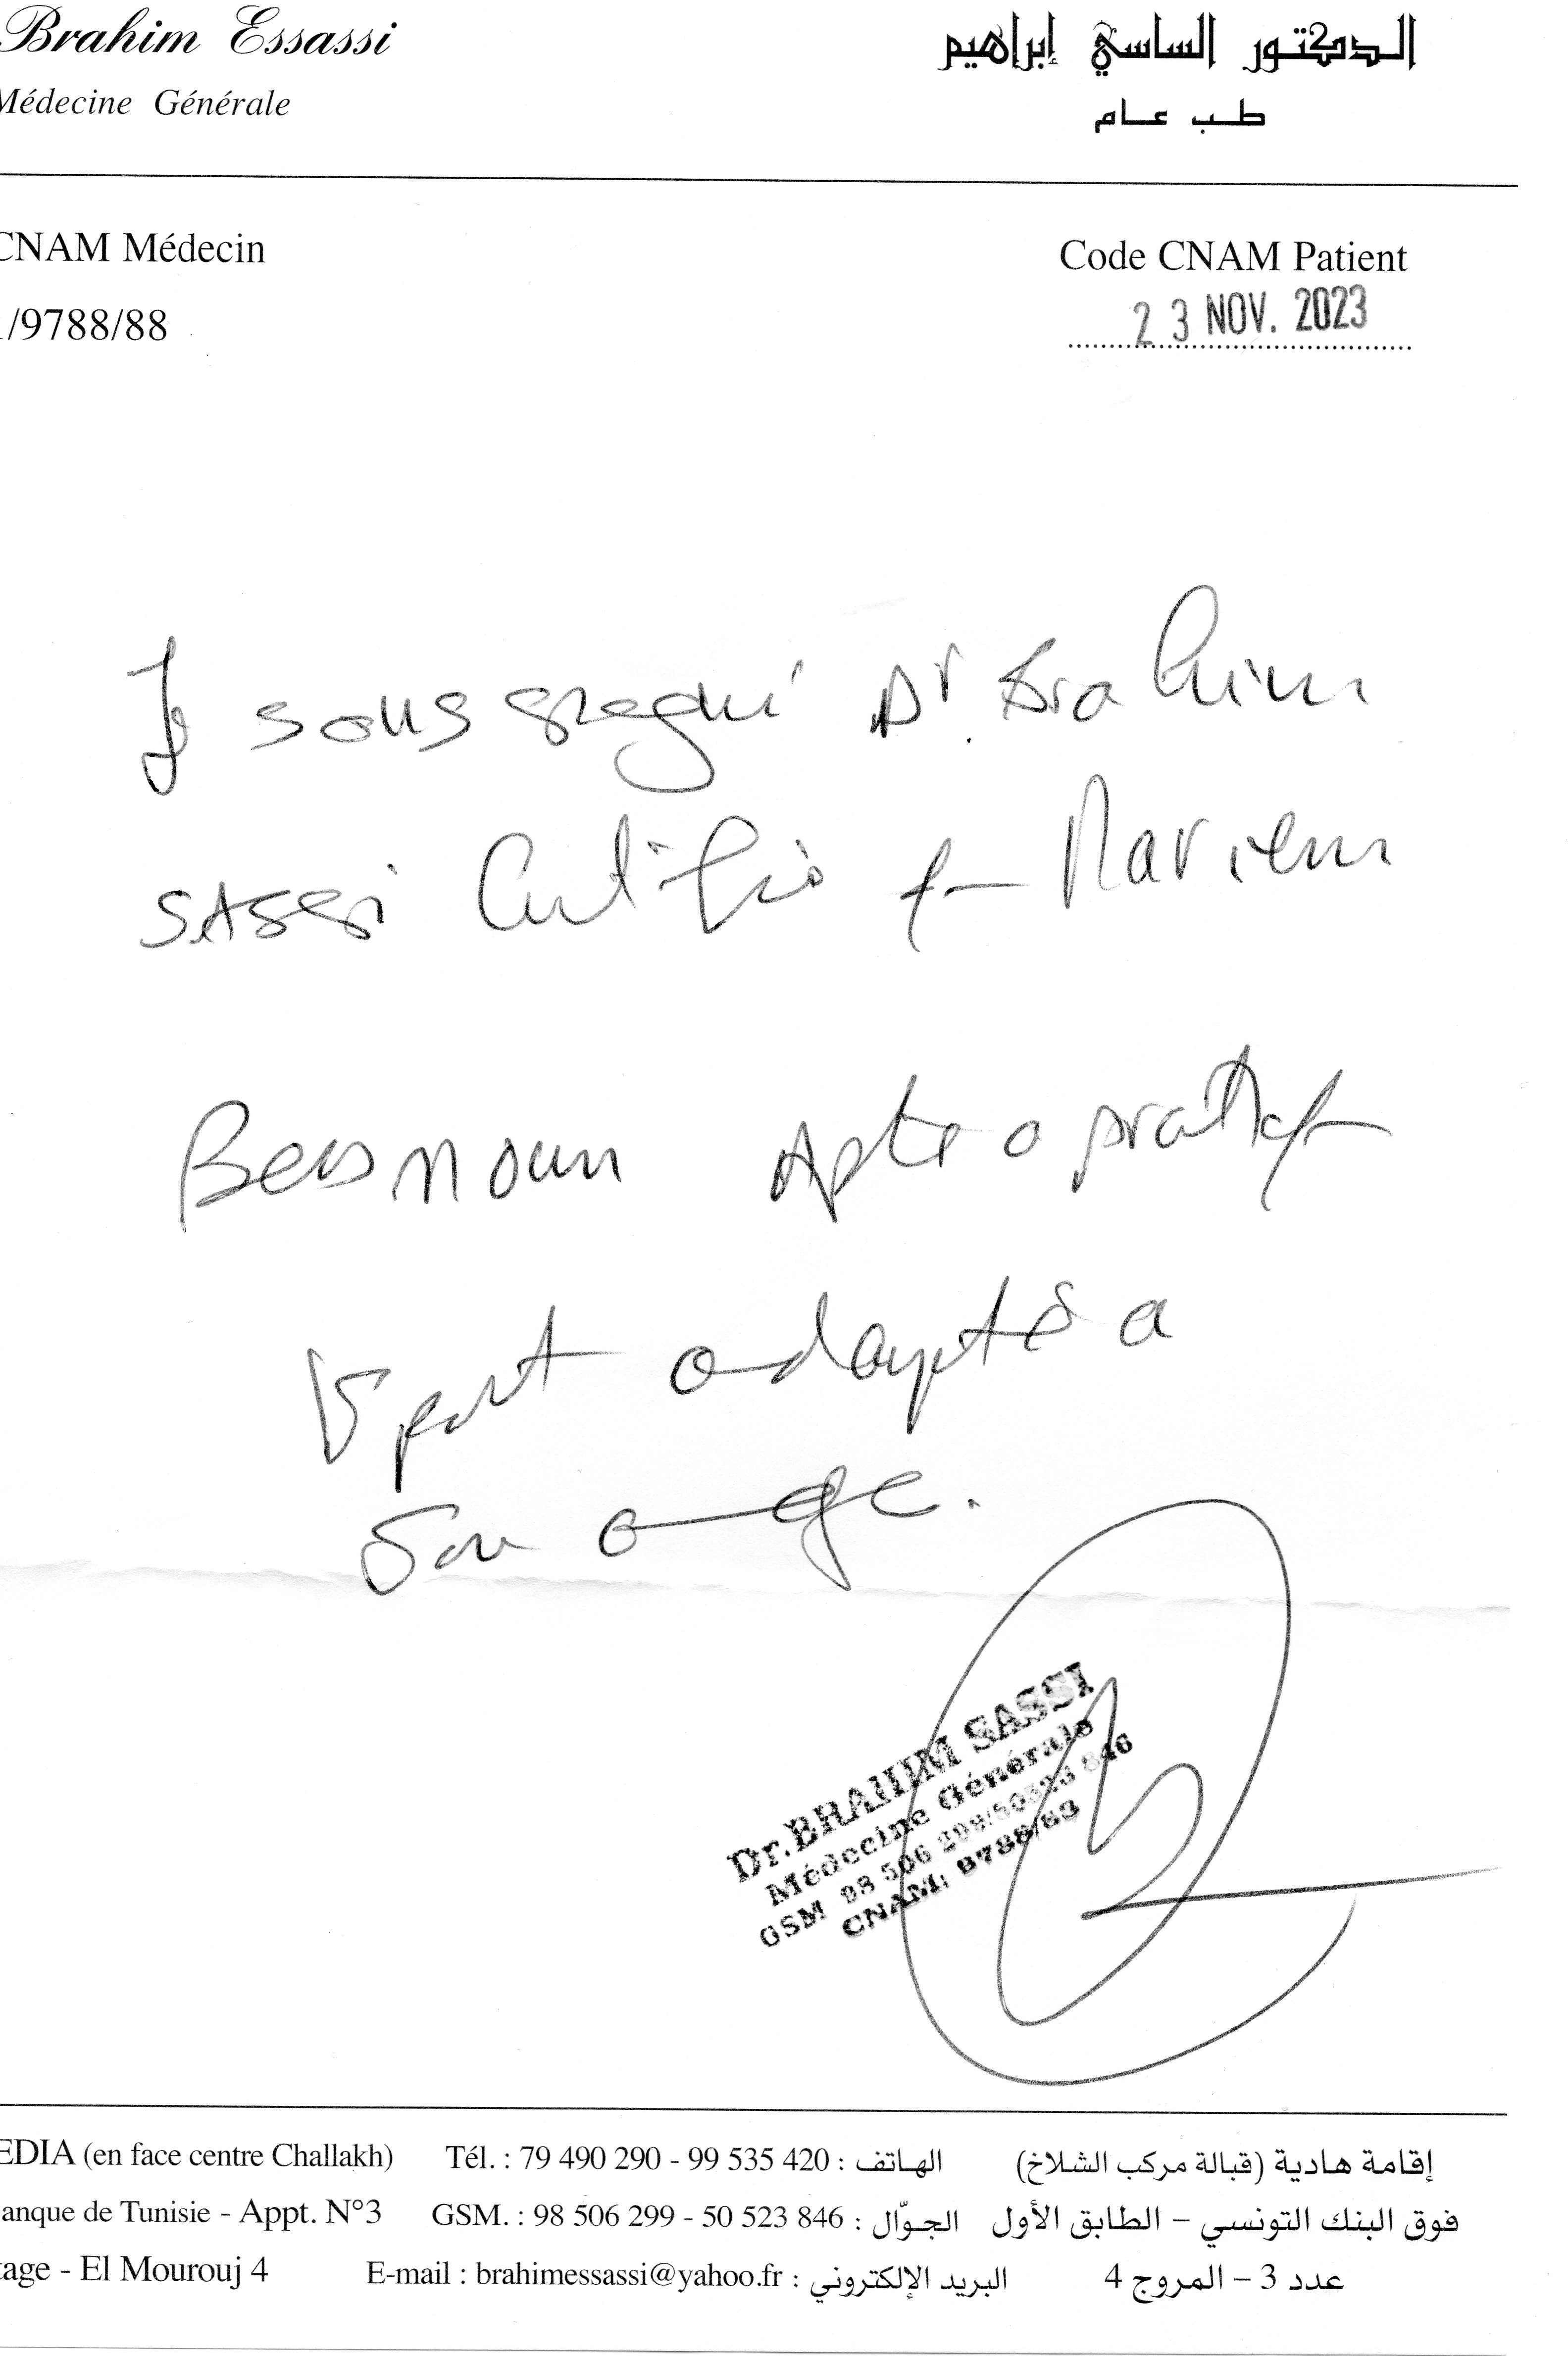 Brahim Essassi
الدكتور الساسي إبراهيم
Médecine Générale
طب عام
CNAM Médecin
Code CNAM Patient
/9788/88
23 NOV. 2023
Je soussigné Dr. Brahim
SASSI Certifie que Mariem
Apte a pratique
Sport adapté a
Son age.
Dr. BRAHIM SASSI
Médecine Générale
GSM 98 506 299/50523 846
CNAM: 9788/88
EDIA (en face centre Challakh)
Tél. : 79 490 290 - 99 535 420 : الهاتف
إقامة هادية (قبالة مركب الشلاخ)
anque de Tunisie - Appt. N°3
GSM. : 98 506 299 - 50 523 846 : الجوّال
فوق البنك التونسي – الطابق الأول
tage - El Mourouj 4
E-mail : brahimessassi@yahoo.fr : البريد الإلكتروني
عدد 3 – المروج 4